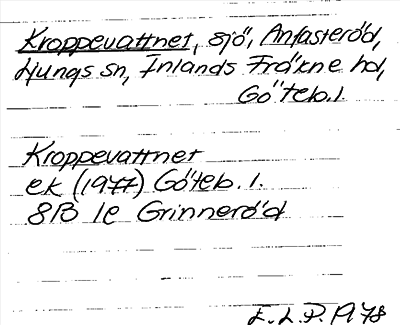 Kroppevattnet, sjö, Anfasteröd,
Ljungs sn, Inlands Fräkne hd,
Göteb.l.
Kroppevattnet
ek (1977) Göteb. l.
8B 1e Grinneröd
E.L.P. 1978